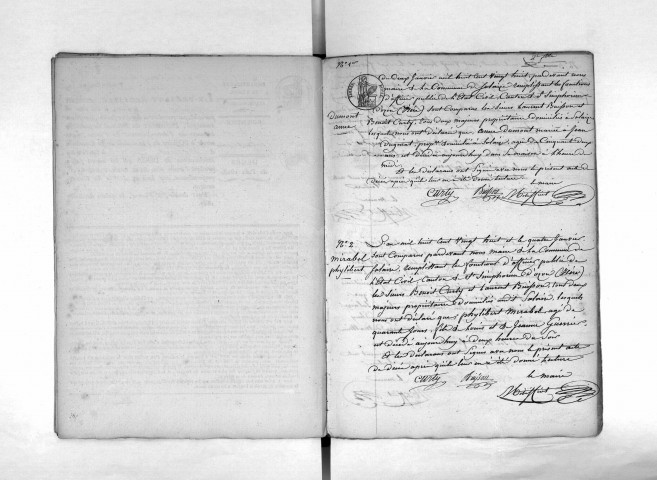 N° 1er
Du deux Janvier mil huit cent vingt huit, pardevant nous
maire de la Commune de Solaize remplissant les fonctions
d'officier public de l'Etat Civil Canton de St Simphorien
d'ozon (Isère) sont Comparus les Sieurs Laurent Buisson et
Damont
anne
Benoit Curty, tous deux majeurs propriétaires domiciliés à Solaize
lesquels nous ont déclaré que anne Damont mariée à Jean
propre domicilié à Solaize, agée de Cinquante deux
année est décédé aujourdhuy dans sa maison à l'heure de
midi
Et les déclarans ont Signé avec nous le présent acte de
décès après qu'il leur en a été donné lecture
le maire
Curty Buisson
N° 2
L'an mil huit Cent Vingt huit et le quatre Janvier
mirabel
phylibert
sont Comparus pardevant nous maire de la Commune de
Solaize, remplissant les fonctions d'officier public de
l'Etat Civil, Canton de St Simphorien d'ozon (Isère)
les Sieurs Benoit Curty et Laurent Buisson, tous deux
majeurs propriétaires domiciliés à Solaize, lesquels
nous ont déclaré que phylibert Mirabel agé de
quarante Jours, fils de Louis et de Jeanne Guerrier
est décédé aujourdhuy à deux heures du Soir
Et les déclarans ont Signés avec nous le présent acte
de décès après qu'il leur en a été donné lecture
le maire
Curty Buisson